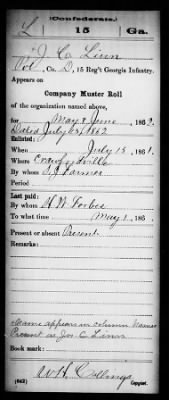 (Confederate.)
L 15 Ga.
J. Co. Linn
Pvt., Co. D, 15 Reg't Georgia Infantry.
Appears on
Company Muster Roll
of the organization named above,
for May & June, 1862.
Dated July 1862
Enlisted:
When July 15, 1861.
Where Crawfordville
By whom Farmer
Period
Last paid:
By whom H. W. Forbes
To what time May 1, 186
Present or absent Present
Remarks:
Name appears in column Names
Present as Jos. C. Linn
Book mark:
(642) Copyist.